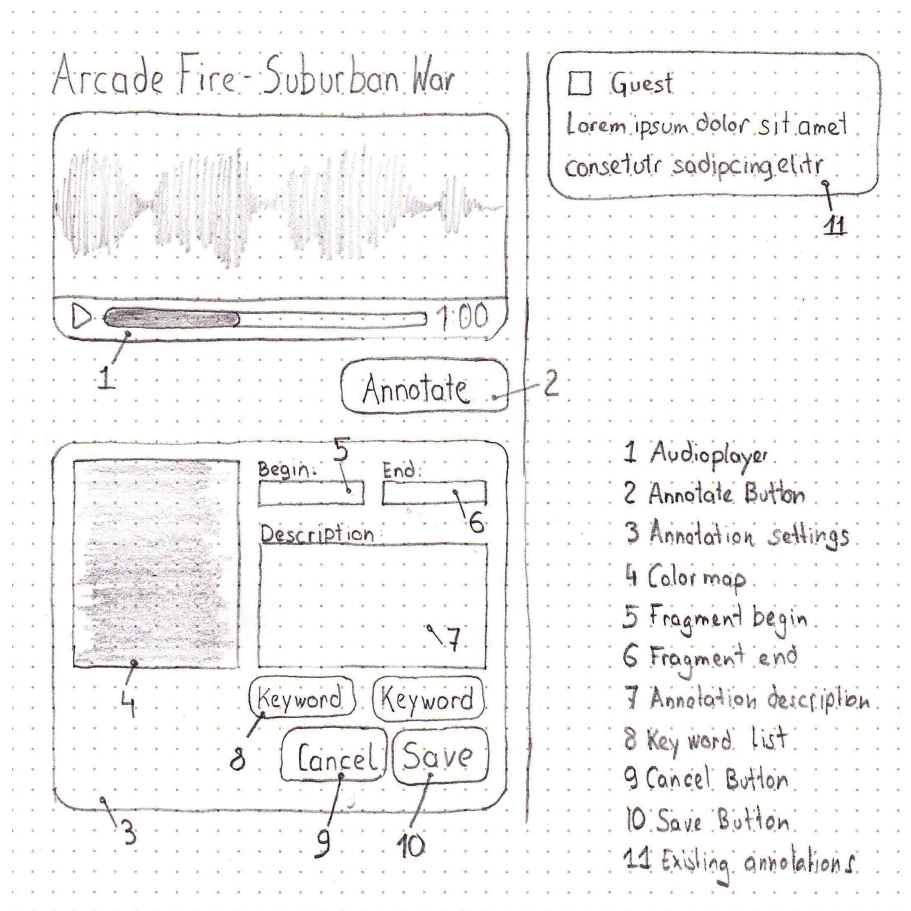 Arcade Fire - Suburban War
1:00
1
Annotate
2
Begin:
5
End:
6
Description:
7
4
Keyword
Keyword
8
Cancel
Save
3
9
10
Guest
Lorem ipsum dolor sit amet
consetutr sadipcing elitr
11
1 Audioplayer
2 Annotate Button
3 Annotation settings
4 Color map
5 Fragment begin
6 Fragment end
7 Annotation description
8 Key word list
9 Cancel Button
10 Save Button
11 Existing annotations